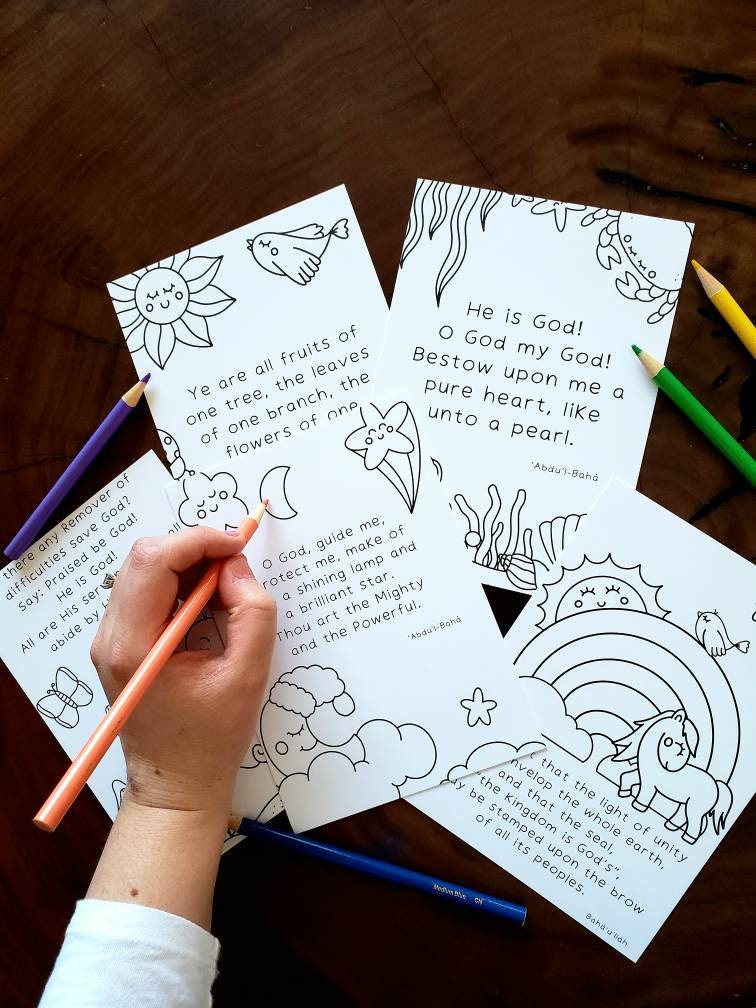 Ye are all fruits of
one tree, the leaves
of one branch, the
flowers of one
He is God!
O God my God!
Bestow upon me a
pure heart, like
unto a pearl.
'Abdu'l-Bahá
there any Remover of
difficulties save God?
Say: Praised be God!
He is God!
All are His
abide by
O God, guide me,
protect me, make of
a shining lamp and
a brilliant star.
Thou art the Mighty
and the Powerful.
'Abdu'l-Bahá
that the light of unity
envelop the whole earth,
and that the seal,
"the Kingdom is God's",
may be stamped upon the brow
of all its peoples.
Bahá'u'lláh
Medium Blue CN